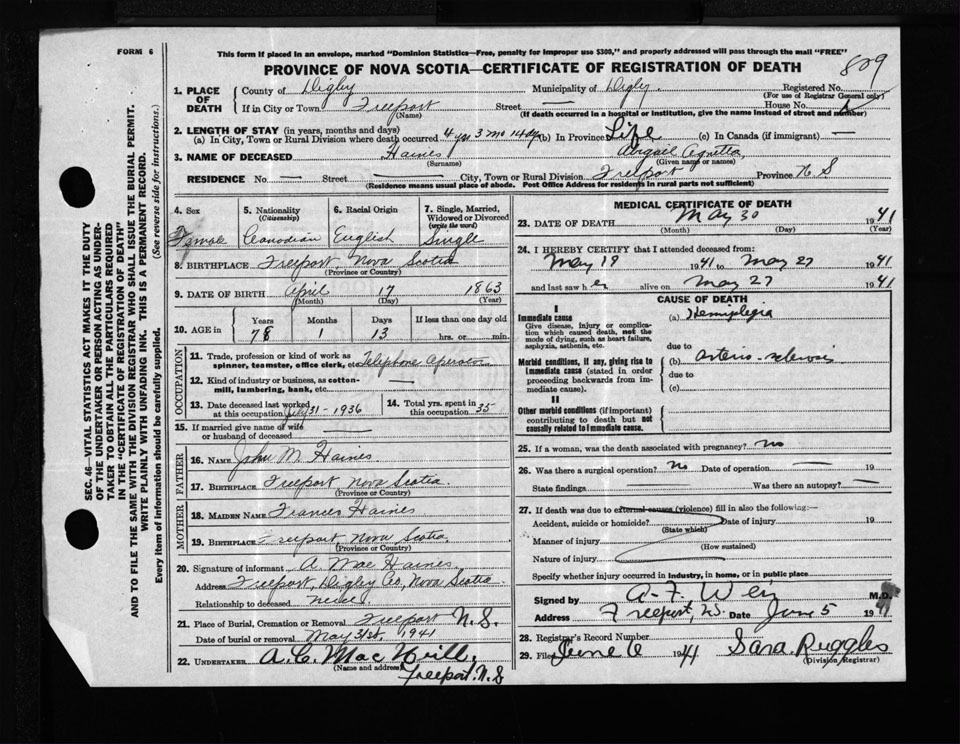 FORM 6
This form if placed in an envelope, marked "Dominion Statistics—Free, penalty for improper use $300," and properly addressed will pass through the mail "FREE"
PROVINCE OF NOVA SCOTIA—CERTIFICATE OF REGISTRATION OF DEATH
809
1. PLACE OF DEATH
County of Digby Municipality of Digby. Registered No.
(For use of Registrar General only)
If in City or Town Freeport Street — House No.
(Name) (If death occurred in a hospital or institution, give the name instead of street and number)
2. LENGTH OF STAY (in years, months and days)
(a) In City, Town or Rural Division where death occurred 4 yrs 3 mo 14 dys (b) In Province Life (c) In Canada (if immigrant) —
3. NAME OF DECEASED Haines Abigail
(Surname) (Given name or names)
RESIDENCE No. — Street — City, Town or Rural Division Freeport Province N S
(Residence means usual place of abode. Post Office Address for residents in rural parts not sufficient)
4. Sex 5. Nationality (Citizenship) 6. Racial Origin 7. Single, Married, Widowed or Divorced (write the word)
Female Canadian English Single
8. BIRTHPLACE Freeport, Nova Scotia
(Province or Country)
9. DATE OF BIRTH April 17 1863
(Month) (Day) (Year)
10. AGE in Years Months Days If less than one day old
78 1 13 hrs. or min.
OCCUPATION
11. Trade, profession or kind of work as spinner, teamster, office clerk, etc. Telephone Operator
12. Kind of industry or business, as cotton-mill, lumbering, bank, etc. —
13. Date deceased last worked at this occupation July 31 - 1936 14. Total yrs. spent in this occupation 35
15. If married give name of wife or husband of deceased —
FATHER
16. Name John M. Haines.
17. Birthplace Freeport Nova Scotia.
(Province or Country)
MOTHER
18. Maiden Name Frances Haines
19. Birthplace Freeport, Nova Scotia.
(Province or Country)
20. Signature of informant A. Mae Haines
Address Freeport, Digby Co, Nova Scotia.
Relationship to deceased niece.
21. Place of Burial, Cremation or Removal Freeport N.S.
Date of burial or removal May 31st, 1941
22. UNDERTAKER A. C. MacNeill,
(Name and address)
Freeport. N.S
MEDICAL CERTIFICATE OF DEATH
23. DATE OF DEATH May 30 1941
(Month) (Day) (Year)
24. I HEREBY CERTIFY that I attended deceased from:
May 19 1941 to May 27 1941
and last saw her alive on May 27 1941
CAUSE OF DEATH
I
Immediate cause
Give disease, injury or complication which caused death, not the mode of dying, such as heart failure, asphyxia, asthenia, etc.
(a) Hemiplegia
due to
Morbid conditions, if any, giving rise to immediate cause (stated in order proceeding backwards from immediate cause).
(b) arterio-sclerosis
due to
(c)
II
Other morbid conditions (if important) contributing to death but not causally related to immediate cause.
25. If a woman, was the death associated with pregnancy? no
26. Was there a surgical operation? No Date of operation — 19
State findings Was there an autopsy? —
27. If death was due to external causes (violence) fill in also the following:—
Accident, suicide or homicide? Date of injury 19
(State which)
Manner of injury
(How sustained)
Nature of injury
Specify whether injury occurred in industry, in home, or in public place
Signed by M.D.
Address Freeport, N.S. Date June 5 1941
28. Registrar's Record Number
29. Filed June 6 1941 Sara Ruggles
(Division Registrar)
SEC. 46—VITAL STATISTICS ACT MAKES IT THE DUTY
OF THE UNDERTAKER OR PERSON ACTING AS UNDER-
TAKER TO OBTAIN ALL THE PARTICULARS REQUIRED
IN THE "CERTIFICATE OF REGISTRATION OF DEATH"
AND TO FILE THE SAME WITH THE DIVISION REGISTRAR WHO SHALL ISSUE THE BURIAL PERMIT.
WRITE PLAINLY WITH UNFADING INK. THIS IS A PERMANENT RECORD.
Every item of information should be carefully supplied. (See reverse side for instructions.)